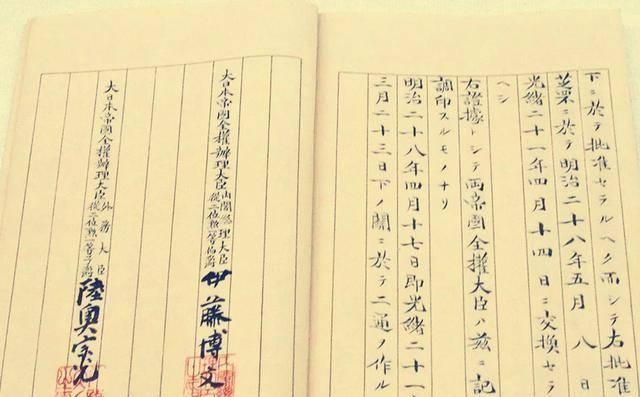 下ニ於テ批准セラルヘク而シテ右批准
芝罘ニ於テ明治二十八年五月八日
光緒二十一年四月十四日ニ交換セラ
ヘシ
右證據トシテ兩帝國全權大臣ハ茲ニ記
調印スルモノナリ
明治二十八年四月十七日卽光緒二十一
三月二十三日下ノ關ニ於テ二通ヲ作ル
大日本帝國全權辦理大臣內閣總理大臣
從二位勳一等伯爵
伊藤博文
大日本帝國全權辦理大臣外務大臣
從二位勳一等子爵
陸奧宗光